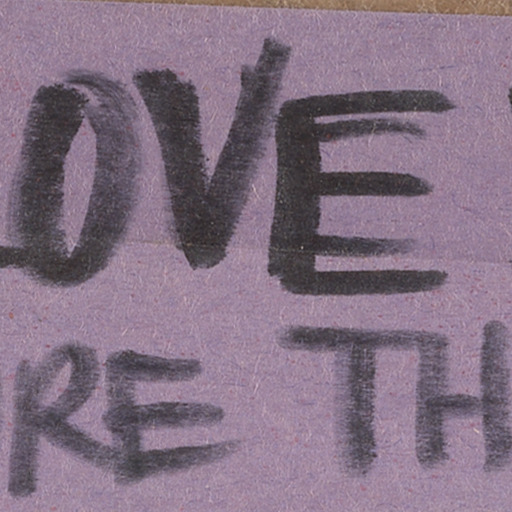 OVE
RE TH